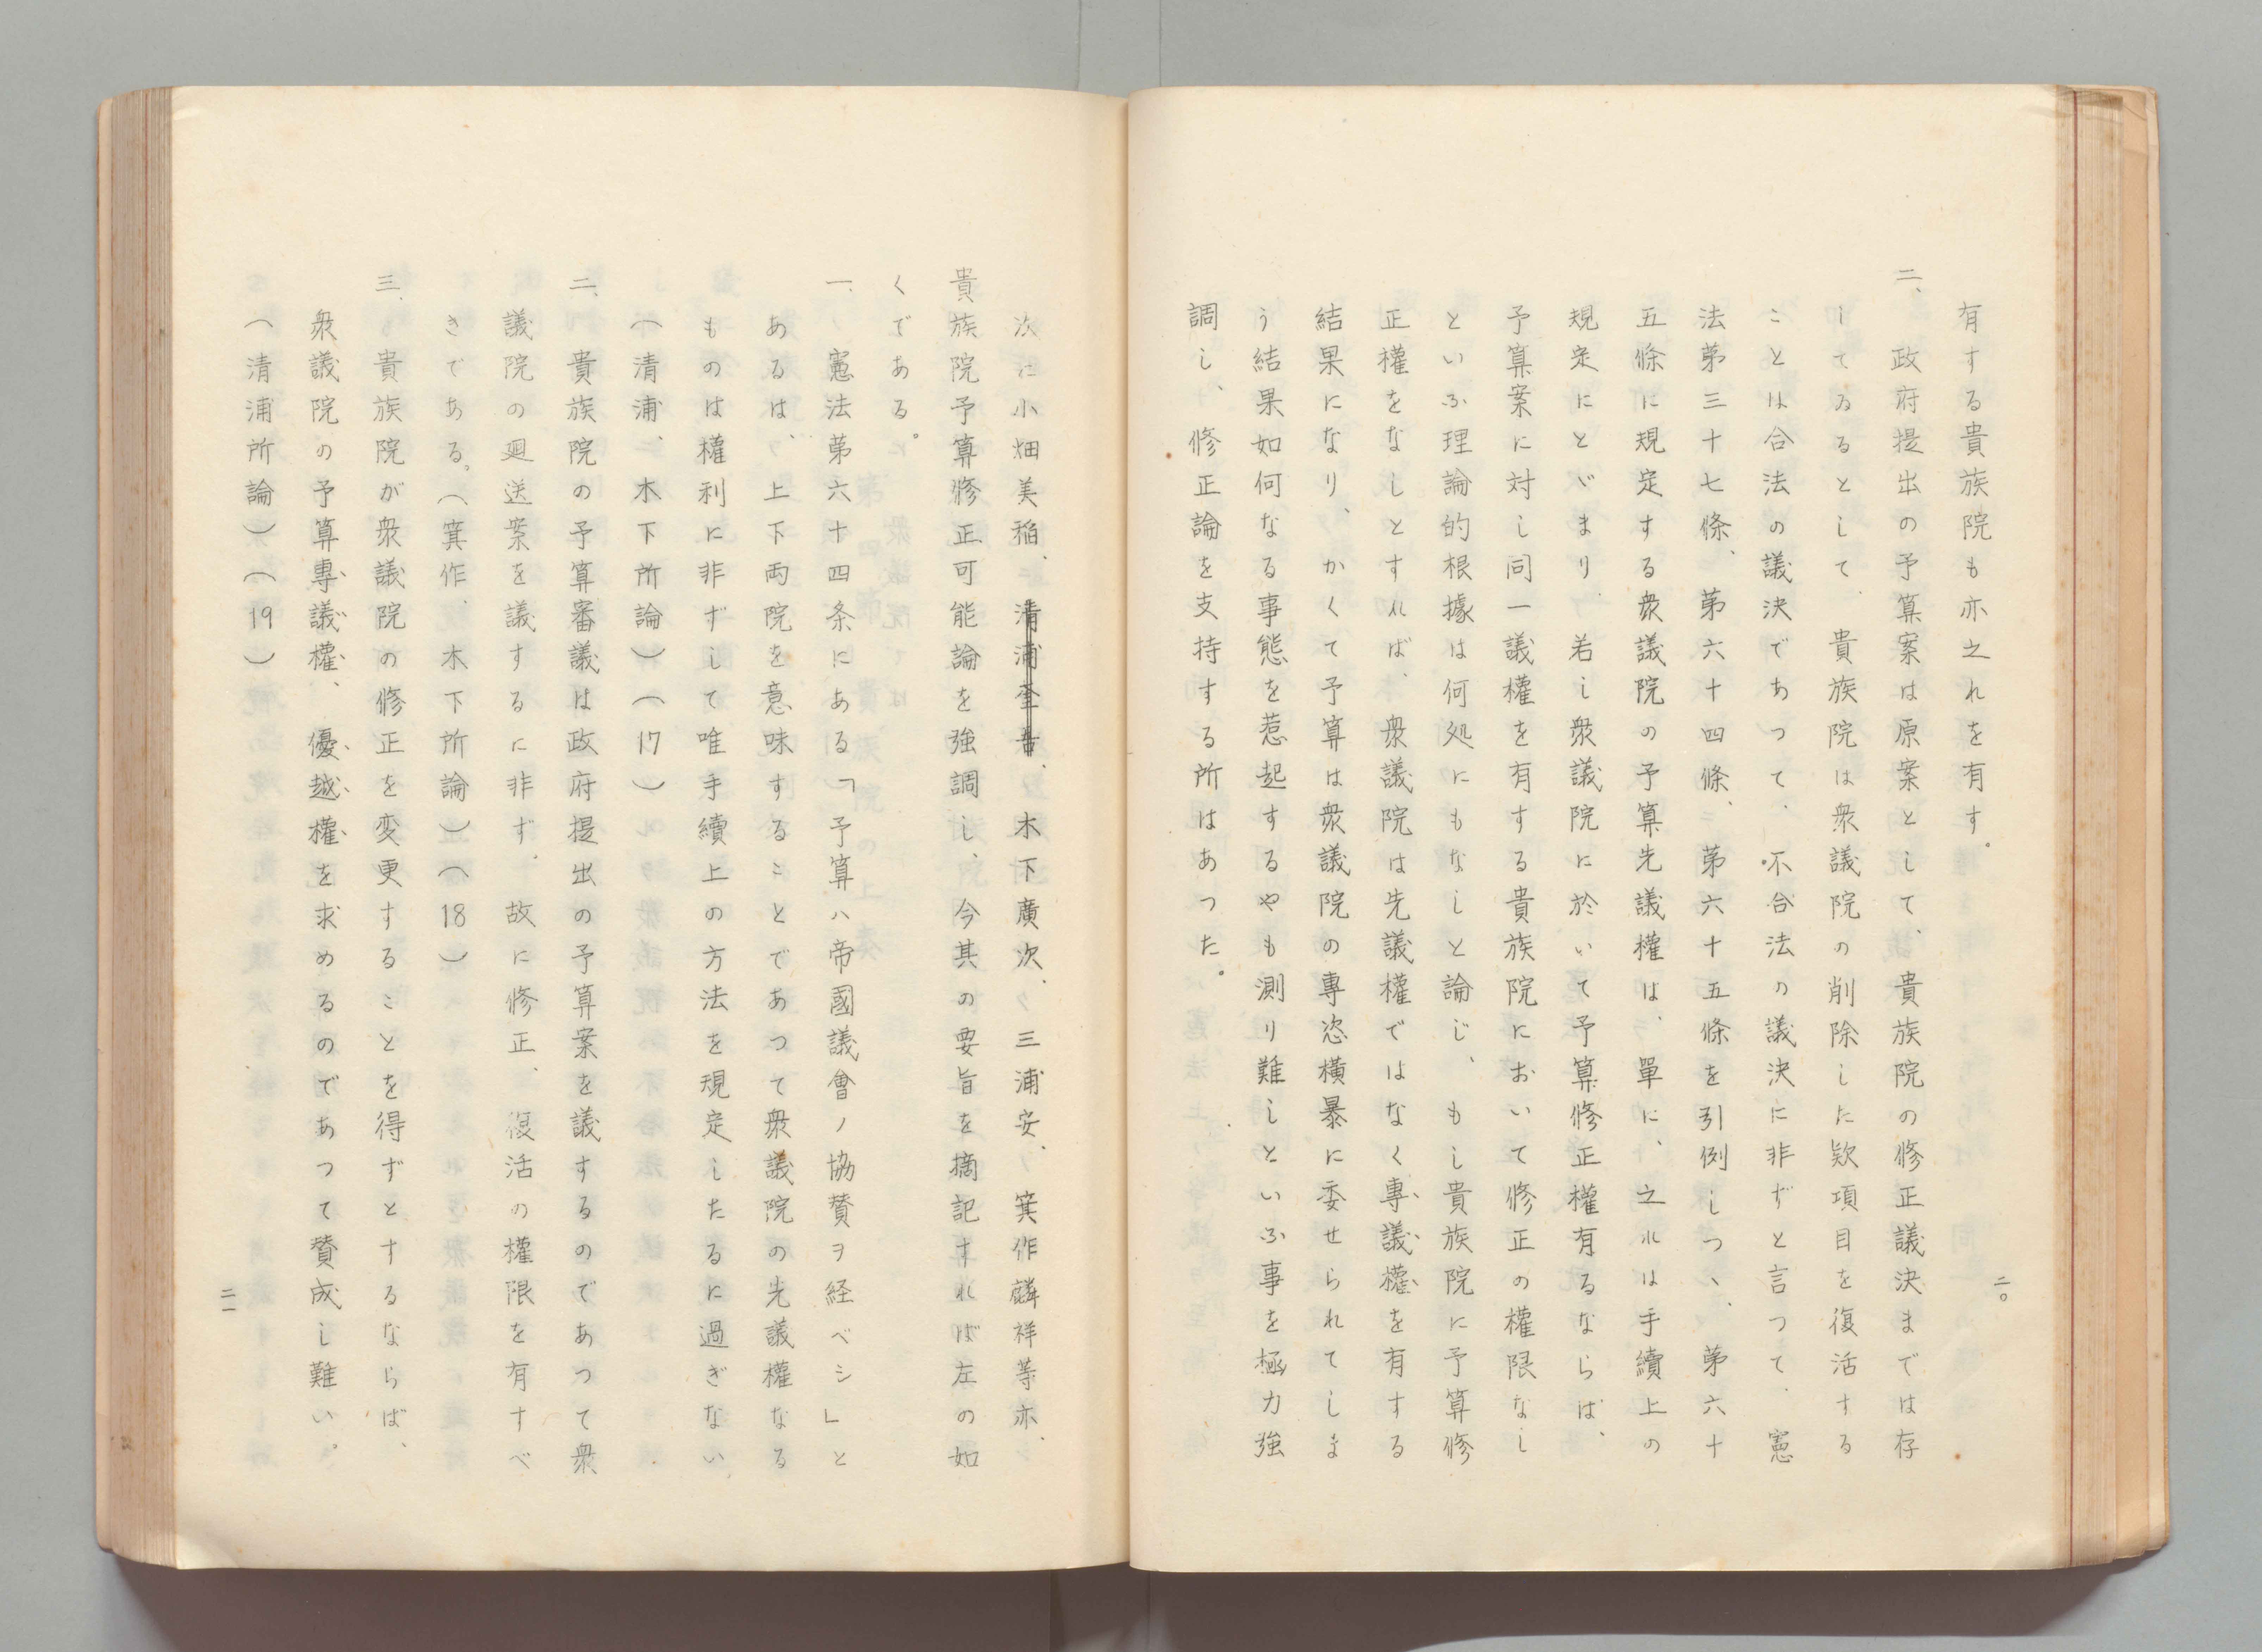 有する貴族院も亦之れを有す。
二、政府提出の予算案は原案として、貴族院の修正議決までは存
してゐるとして、貴族院は衆議院の削除した欵項目を復活する
ことは合法の議決であつて、不合法の議決に非ずと言つて、憲
法第三十七條、第六十四條、第六十五條を引例しつゝ、第六十
五條に規定する衆議院の予算先議權は、單に、之れは手續上の
規定にとゞまり、若し衆議院に於いて予算修正權有るならば、
予算案に対し同一議權を有する貴族院において修正の權限なし
といふ理論的根據は何処にもなしと論じ、もし貴族院に予算修
正權をなしとすれば、衆議院は先議權ではなく專議權を有する
結果になり、かくて予算は衆議院の專恣橫暴に委せられてしま
う結果如何なる事態を惹起するやも測り難しといふ事を極力強
調し、修正論を支持する所はあつた。
二〇
次は小畑美稲、清浦奎吾、木下廣次、三浦安、箕作麟祥等亦、
貴族院予算修正可能論を強調し、今其の要旨を摘記すれば左の如
くである。
一、憲法第六十四条にある「予算ハ帝國議會ノ協賛ヲ経ベシ」と
あるは、上下両院を意味することであつて衆議院の先議權なる
ものは權利に非ずして唯手續上の方法を規定したるに過ぎない、
（清浦、木下所論）（17）
二、貴族院の予算審議は政府提出の予算案を議するのであつて衆
議院の廻送案を議するに非ず。故に修正、復活の權限を有すべ
きである。（箕作、木下所論）（18）
三、貴族院が衆議院の修正を変更することを得ずとするならば、
衆議院の予算專議權、優越權を求めるのであつて賛成し難い。
（清浦所論）（19）
二一